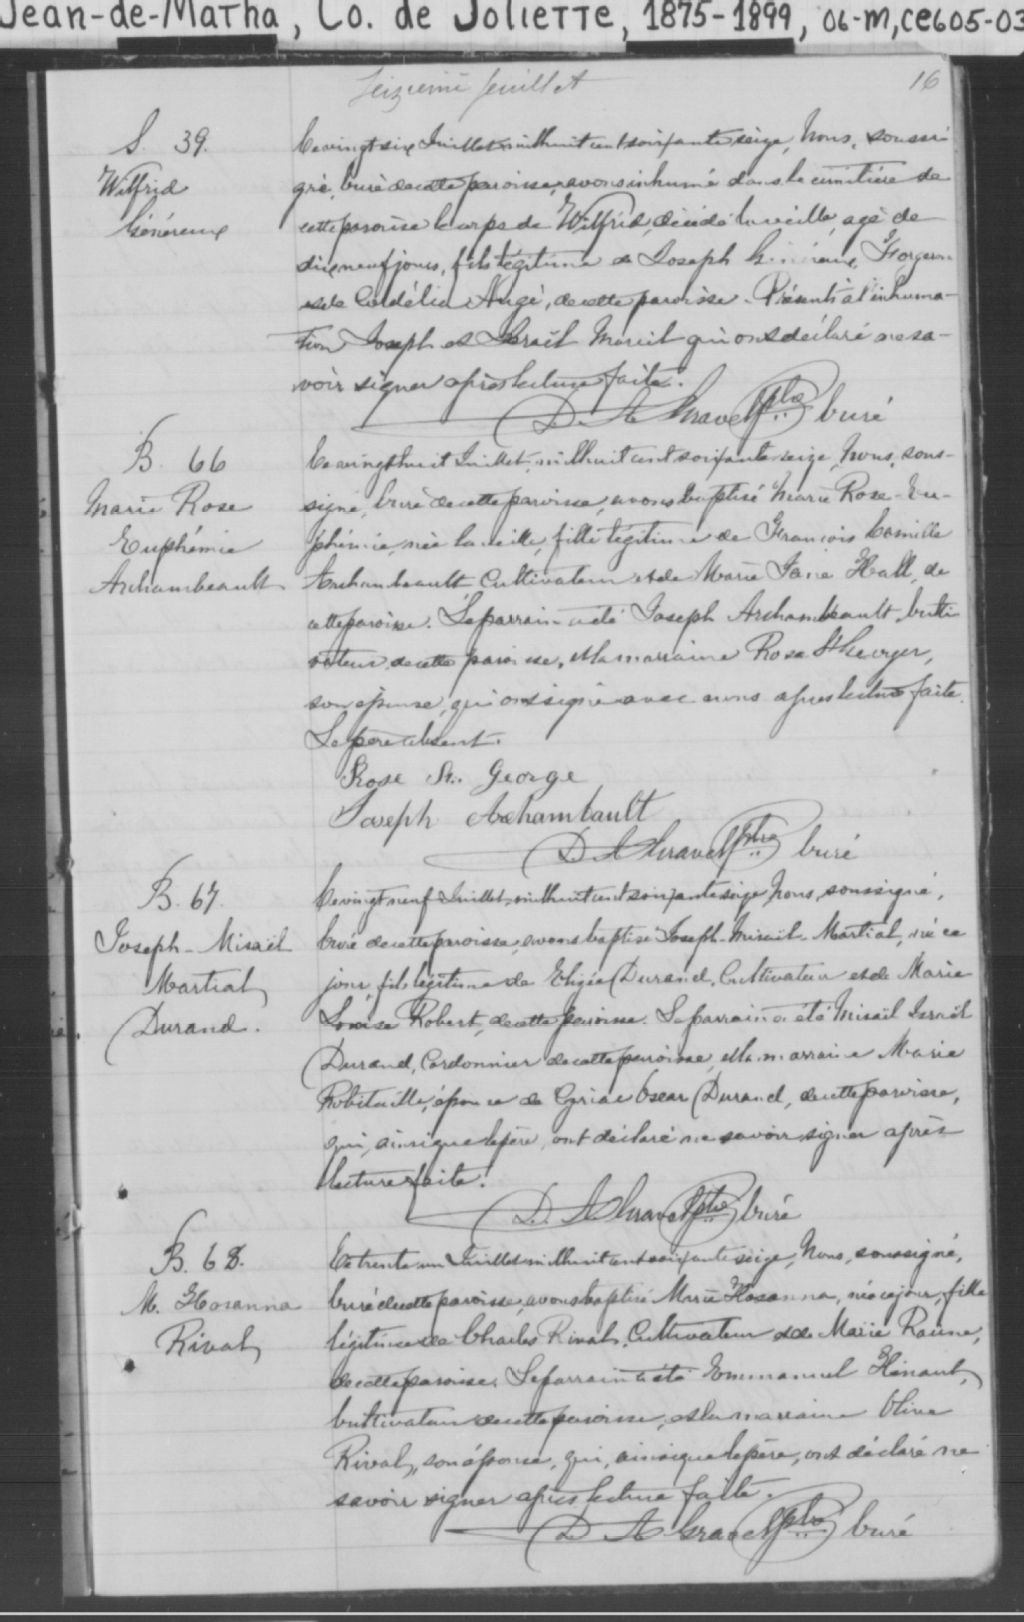 Jean-de-Matha, Co. de Joliette, 1875-1899, 06-M, CE605-03
Seizième feuillet
16
S. 39.
Wilfrid
Généreux
Ce vingt six Juillet mil huit cent soixante seize, Nous, soussi-
gné, Curé de cette paroisse, avons inhumé dans le cimitière de
cette paroisse le corps de Wilfrid, décédé la veille, agé de
dix neuf jours, fils légitime de Joseph Généreux, Forgeron
et de Cordélia Augé, de cette paroisse. Présents à l'inhuma-
tion Joseph et Israël Marcil qui ont déclaré ne sa-
voir signer après lecture faite.
D. A. Gravel Ptre Curé
B. 66
Marie Rose
Euphémie
Archambeault
Ce vingt huit Juillet, mil huit cent soixante seize, Nous, sous-
signé, Curé de cette paroisse, avons baptisé Marie Rose-Eu-
phémie, née la veille, fille légitime de François Camille
Archambeault Cultivateur et de Marie Jane Hall, de
cette paroisse. Le parrain a été Joseph Archambeault, Culti
vateur de cette paroisse, et la marraine Rose St George,
son épouse, qui ont signé avec nous après lecture faite.
Le père absent.
Rose St. George
Joseph Archambault
D. A. Gravel Ptre Curé
B. 67.
Joseph-Misaël
Martial
Durand.
Ce vingt neuf Juillet, mil huit cent soixante seize, Nous, soussigné,
Curé de cette paroisse, avons baptisé Joseph-Misaël-Martial, né ce
jour, fils légitime de Eligée Durand, Cultivateur et de Marie
Louise Robert, de cette paroisse. Le parrain a été Misaël Israël
Durand, Cordonnier de cette paroisse, et la marraine Marie
Robitaille, épouse de Cyriac Oscar Durand, de cette paroisse,
qui, ainsi que le père, ont déclaré ne savoir signer après
lecture faite.
D. A. Gravel Ptre Curé
B. 68.
M. Hosanna
Rival
Ce trente un Juillet mil huit cent soixante seize, Nous, soussigné,
Curé de cette paroisse, avons baptisé Marie Hosanna, née ce jour, fille
légitime de Charles Rival, Cultivateur et de Marie Racine,
de cette paroisse. Le parrain a été Emmanuel Hénault,
Cultivateur de cette paroisse, et la marraine Olive
Rival, son épouse, qui, ainsi que le père, ont déclaré ne
savoir signer après lecture faite.
D. A. Gravel Ptre Curé